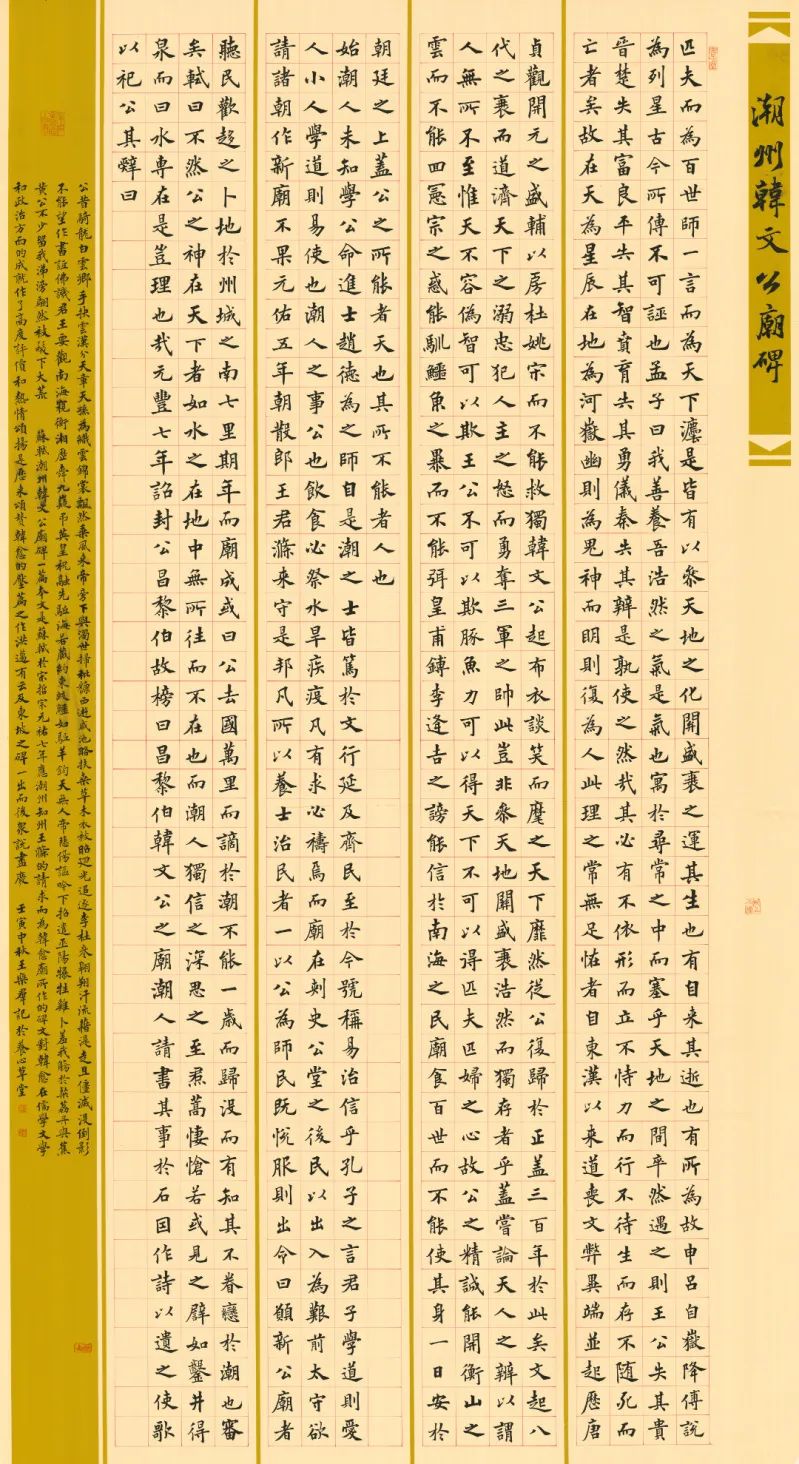 潮州韓文公廟碑
匹夫而為百世師一言而為天下灋是皆有以參天地之化關盛衰之運其生也有自来其逝也有所為故申呂自嶽降傅說
為列星古今所傳不可誣也孟子曰我善養吾浩然之氣是氣也寓於尋常之中而塞乎天地之間卒然遇之則王公失其貴
晉楚失其富良平失其智賁育失其勇儀秦失其辯是孰使之然哉其必有不依形而立不恃力而行不待生而存不随死而
亡者矣故在天為星辰在地為河嶽幽則為鬼神而明則復為人此理之常無足怪者自東漢以来道喪文弊異端並起歷唐
貞觀開元之盛輔以房杜姚宋而不能救獨韓文公起布衣談笑而麾之天下靡然從公復歸於正蓋三百年於此矣文起八
代之衰而道濟天下之溺忠犯人主之怒而勇奪三軍之帥此豈非參天地關盛衰浩然而獨存者乎蓋嘗論天人之辨以謂
人無所不至惟天不容偽智可以欺王公不可以欺豚魚力可以得天下不可以得匹夫匹婦之心故公之精誠能開衡山之
雲而不能回憲宗之惑能馴鱷魚之暴而不能弭皇甫鎛李逢吉之謗能信於南海之民廟食百世而不能使其身一日安於
朝廷之上蓋公之所能者天也其所不能者人也
始潮人未知學公命進士趙德為之師自是潮之士皆篤於文行延及齊民至於今號稱易治信乎孔子之言君子學道則愛
人小人學道則易使也潮人之事公也飲食必祭水旱疾疫凡有求必禱焉而廟在刺史公堂之後民以出入為艱前太守欲
請諸朝作新廟不果元佑五年朝散郎王君滌来守是邦凡所以養士治民者一以公為師民既悅服則出令曰願新公廟者
聽民歡趨之卜地於州城之南七里期年而廟成或曰公去國萬里而謫於潮不能一歲而歸沒而有知其不眷戀於潮也審
矣軾曰不然公之神在天下者如水之在地中無所往而不在也而潮人獨信之深思之至焄蒿悽愴若或見之譬如鑿井得
泉而曰水專在是豈理也哉元豐七年詔封公昌黎伯故榜曰昌黎伯韓文公之廟潮人請書其事於石因作詩以遺之使歌
以祀公其辭曰
公昔騎龍白雲鄉手抉雲漢分天章天孫為織雲錦裳飄然乘風来帝旁下與濁世掃秕糠西遊咸池略扶桑草木衣被昭迴光追逐李杜参翱翔汗流籍湜走且僵滅没倒影
不能望作書詆佛譏君王要觀南海窺衡湘歷舜九嶷弔英皇祝融先驅海若藏約束蛟鱷如驅羊鈞天無人帝悲傷謳吟下招遣巫陽犦牲雞卜羞我觴於粲荔丹與蕉
黃公不少留我涕滂翩然被髮下大荒 蘇軾潮州韓文公廟碑一篇本文是蘇軾於宋哲宗元祐七年應潮州知州王滌的請求而為韓愈廟所作的碑文對韓愈在儒學文學
和政治方面的成就作了高度評價和熱情頌揚是歷来頌赞韓愈的壓篇之作洪邁有云及東坡之碑一出而後眾說盡廢 壬寅中秋王樂群記於養心草堂